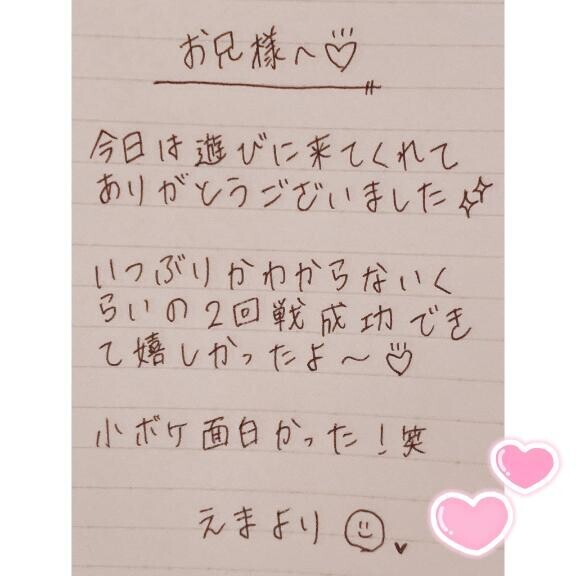 お兄様へ♡
今日は遊びに来てくれて
ありがとうございました✨
いつぶりかわからないく
らいの2回戦成功でき
て嬉しかったよ〜♡
小ボケ面白かった!笑
えまより☺♥